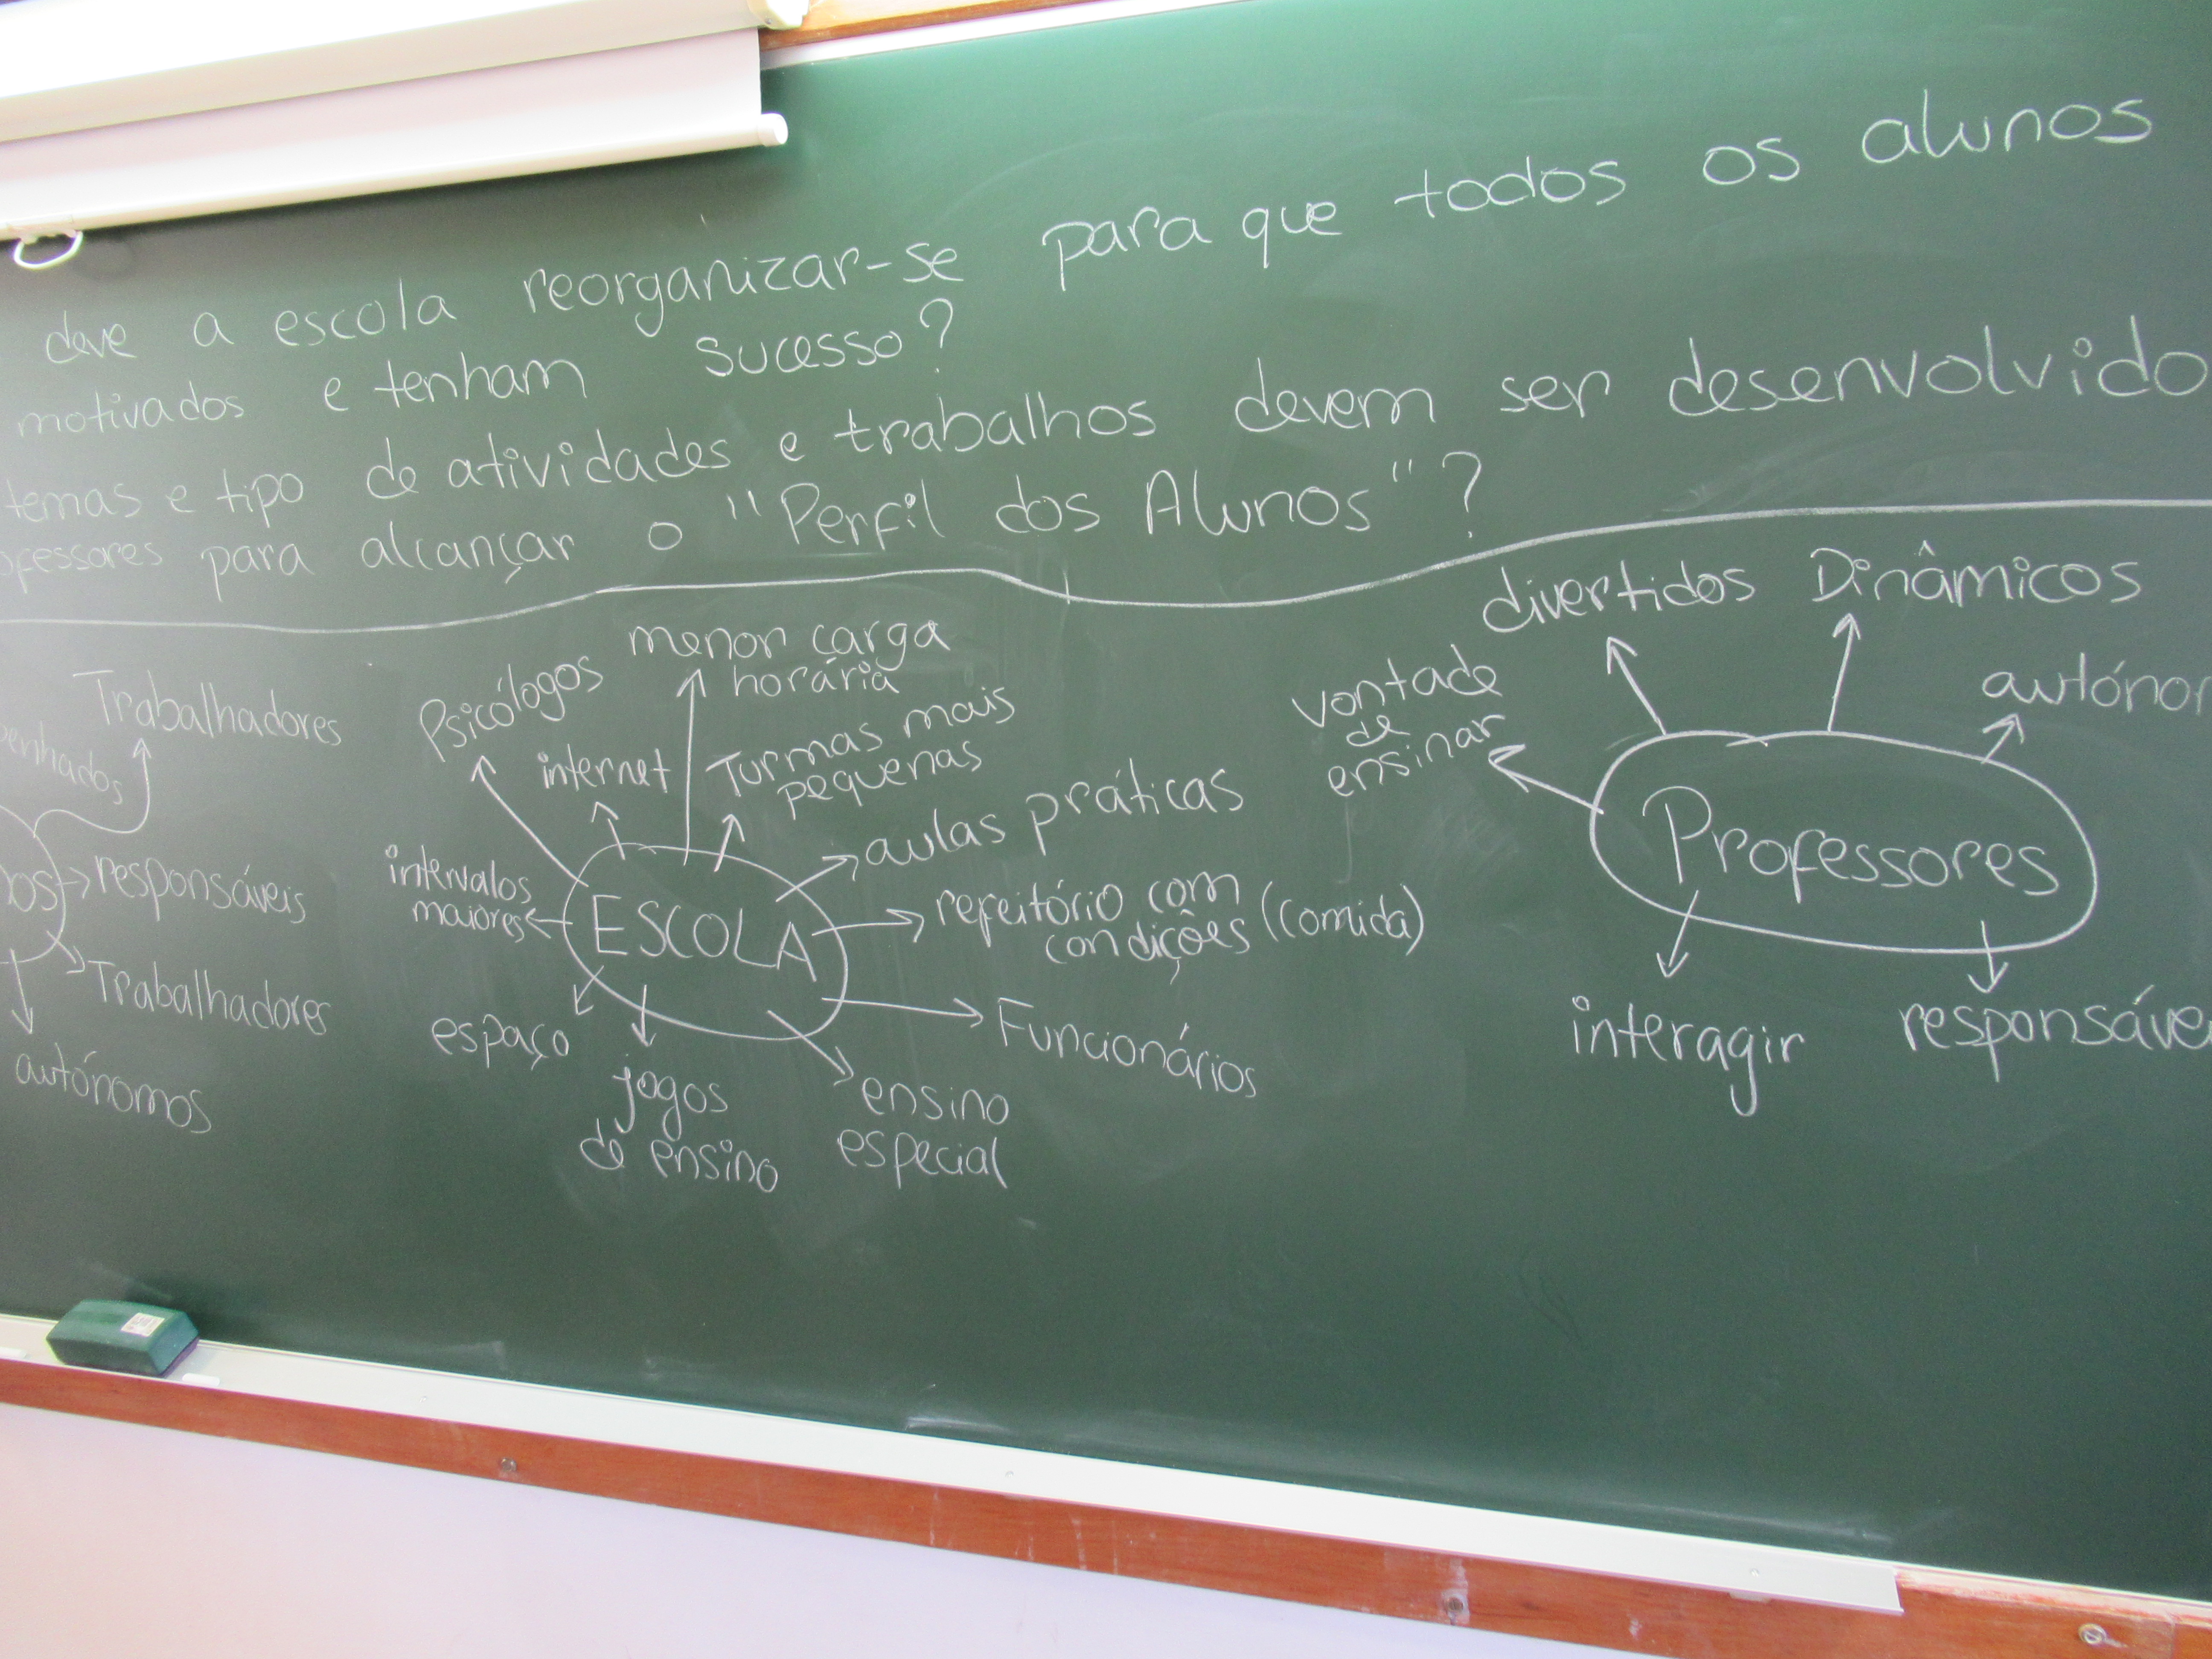 deve a escola reorganizar-se para que todos os alunos
motivados e tenham sucesso?
temas e tipo de atividades e trabalhos devem ser desenvolvido
ofessores para alcançar o "Perfil dos Alunos"?
Trabalhadores
penhados
os
responsáveis
Trabalhadores
autónomos
Psicólogos
menor carga
horária
internet
Turmas mais
pequenas
aulas práticas
intervalos
maiores
ESCOLA
refeitório com
condições (comida)
Funcionários
espaço
jogos
de ensino
ensino
especial
divertidos
Dinâmicos
vontade
de
ensinar
autónom
Professores
interagir
responsáve